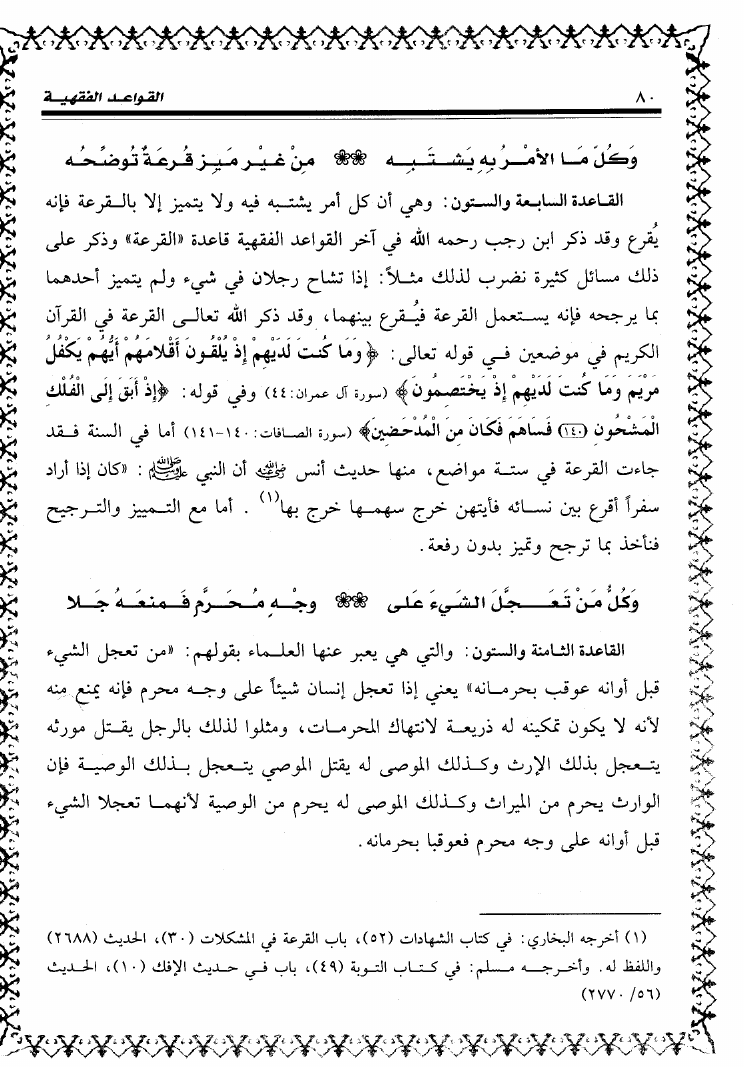 ٨٠ القواعد الفقهية
وَكُلّ مَا الأمْرُ بِهِ يَشْتَبِه ❀❀ مِنْ غَيْرِ مَيزِ قُرعَةٌ تُوضِّحُه
القاعدة السابعة والستون: وهي أن كل أمر يشتبه فيه ولا يتميز إلا بالقرعة فإنه
يُقرع وقد ذكر ابن رجب رحمه الله في آخر القواعد الفقهية قاعدة «القرعة» وذكر على
ذلك مسائل كثيرة نضرب لذلك مثلاً: إذا تشاح رجلان في شيء ولم يتميز أحدهما
بما يرجحه فإنه يستعمل القرعة فيُقرع بينهما، وقد ذكر الله تعالى القرعة في القرآن
الكريم في موضعين في قوله تعالى: ﴿وَمَا كُنتَ لَدَيْهِمْ إِذْ يُلْقُونَ أَقْلامَهُمْ أَيُّهُمْ يَكْفُلُ
مَرْيَمَ وَمَا كُنتَ لَدَيْهِمْ إِذْ يَخْتَصِمُونَ﴾ (سورة آل عمران:٤٤) وفي قوله: ﴿إِذْ أَبَقَ إِلَى الْفُلْكِ
الْمَشْحُونِ (١٤٠) فَسَاهَمَ فَكَانَ مِنَ الْمُدْحَضِينَ﴾ (سورة الصافات:١٤٠-١٤١) أما في السنة فقد
جاءت القرعة في ستة مواضع، منها حديث أنس رضي الله عنه أن النبي ﷺ: «كان إذا أراد
سفراً أقرع بين نسائه فأيتهن خرج سهمها خرج بها(١) . أما مع التمييز والترجيح
فنأخذ بما ترجح وتميز بدون رفعة.
وَكُلُّ مَنْ تَعَجَّلَ الشَّيءَ عَلَى ❀❀ وجْهٍ مُحَرَّمٍ فَمنعَهُ جَلا
القاعدة الثامنة والستون: والتي هي يعبر عنها العلماء بقولهم: «من تعجل الشيء
قبل أوانه عوقب بحرمانه» يعني إذا تعجل إنسان شيئاً على وجه محرم فإنه يمنع منه
لأنه لا يكون تمكينه له ذريعة لانتهاك المحرمات، ومثلوا لذلك بالرجل يقتل مورثه
يتعجل بذلك الإرث وكذلك الموصى له يقتل الموصي يتعجل بذلك الوصية فإن
الوارث يحرم من الميراث وكذلك الموصى له يحرم من الوصية لأنهما تعجلا الشيء
قبل أوانه على وجه محرم فعوقبا بحرمانه.
(١) أخرجه البخاري: في كتاب الشهادات (٥٢)، باب القرعة في المشكلات (٣٠)، الحديث (٢٦٨٨)
واللفظ له. وأخرجه مسلم: في كتاب التوبة (٤٩)، باب في حديث الإفك (١٠)، الحديث
(٢٧٧٠/٥٦)